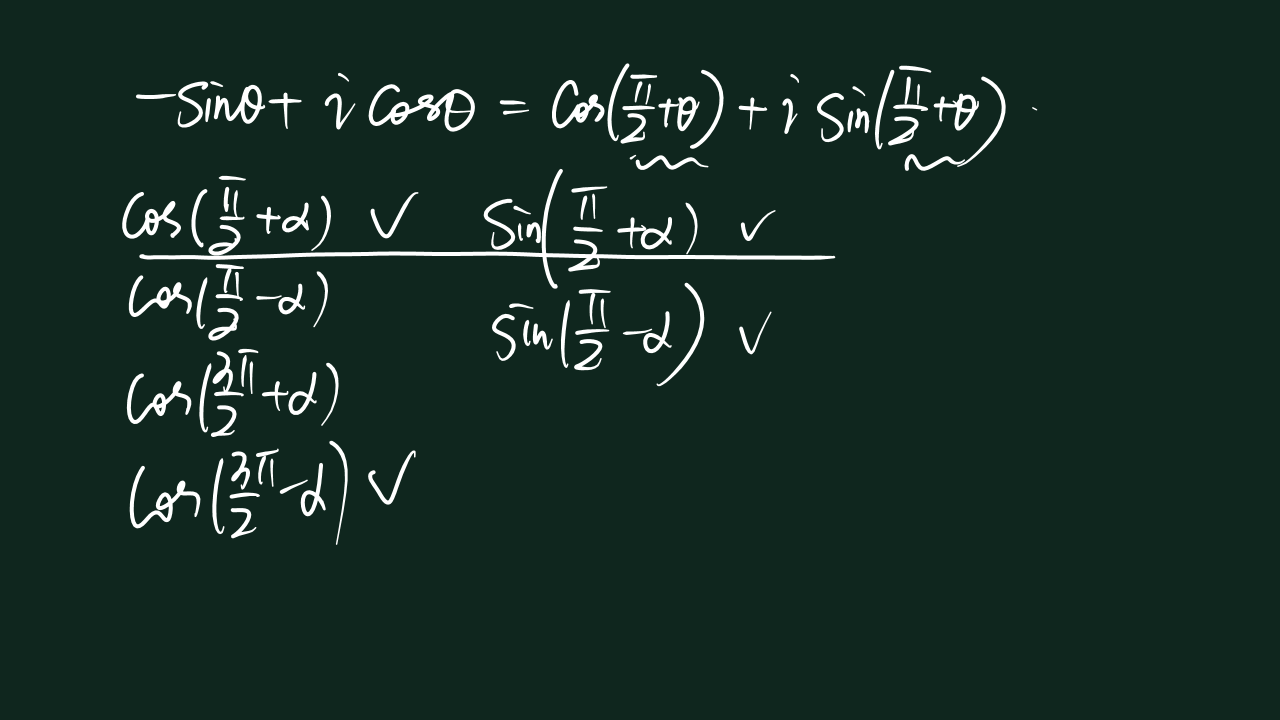 -sinθ + i cosθ = cos(π/2 + θ) + i sin(π/2 + θ)
cos(π/2 + α) ✓ sin(π/2 + α) ✓
cos(π/2 - α) sin(π/2 - α) ✓
cos(3π/2 + α)
cos(3π/2 - α) ✓